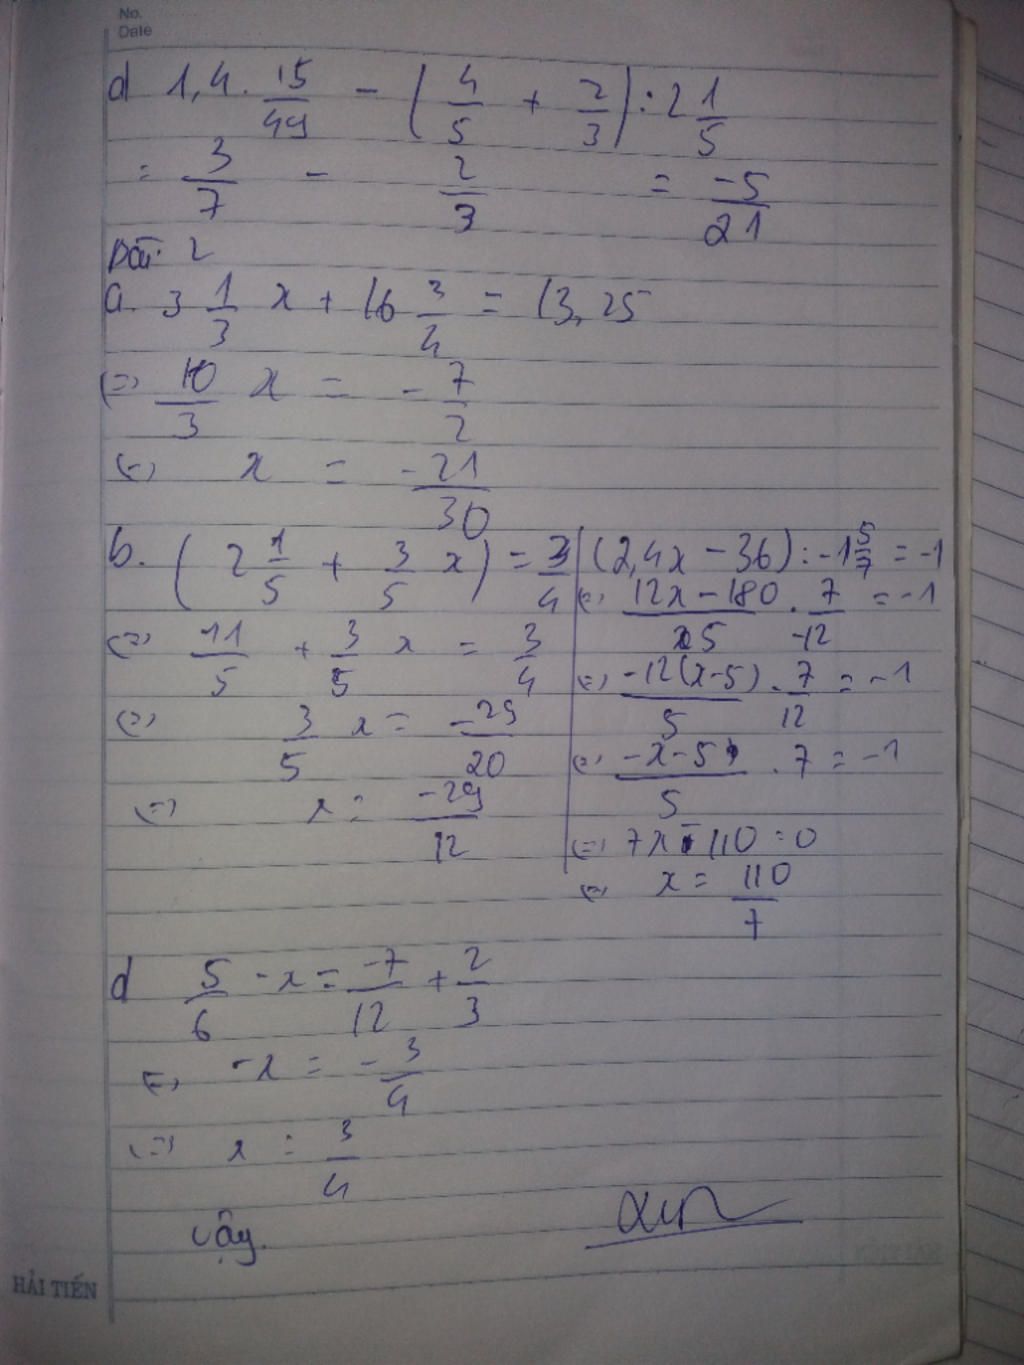 No.
Date
d 1,4 . 15/49 - (4/5 + 2/3) : 2 1/5
= 3/7 - 2/3 = -5/21
Bài 2
a. 3 1/3 x + 16 3/4 = 13,25
(=) 10/3 x = -7/2
(=) x = -21/30
b. (2 1/5 + 3/5 x) = 3/4
(=) 11/5 + 3/5 x = 3/4
(=) 3/5 x = -29/20
(=) x = -29/12
(2,4x - 36) : -1 5/7 = -1
(=) 12x - 180/5 . 7/-12 = -1
(=) -12(x-5)/5 . 7/12 = -1
(=) -x-5/5 . 7 = -1
(=) 7x - 110 = 0
(=) x = 110/7
d 5/6 - x = -7/12 + 2/3
(=) -x = -3/4
(=) x = 3/4
Vậy.
HẢI TIẾN